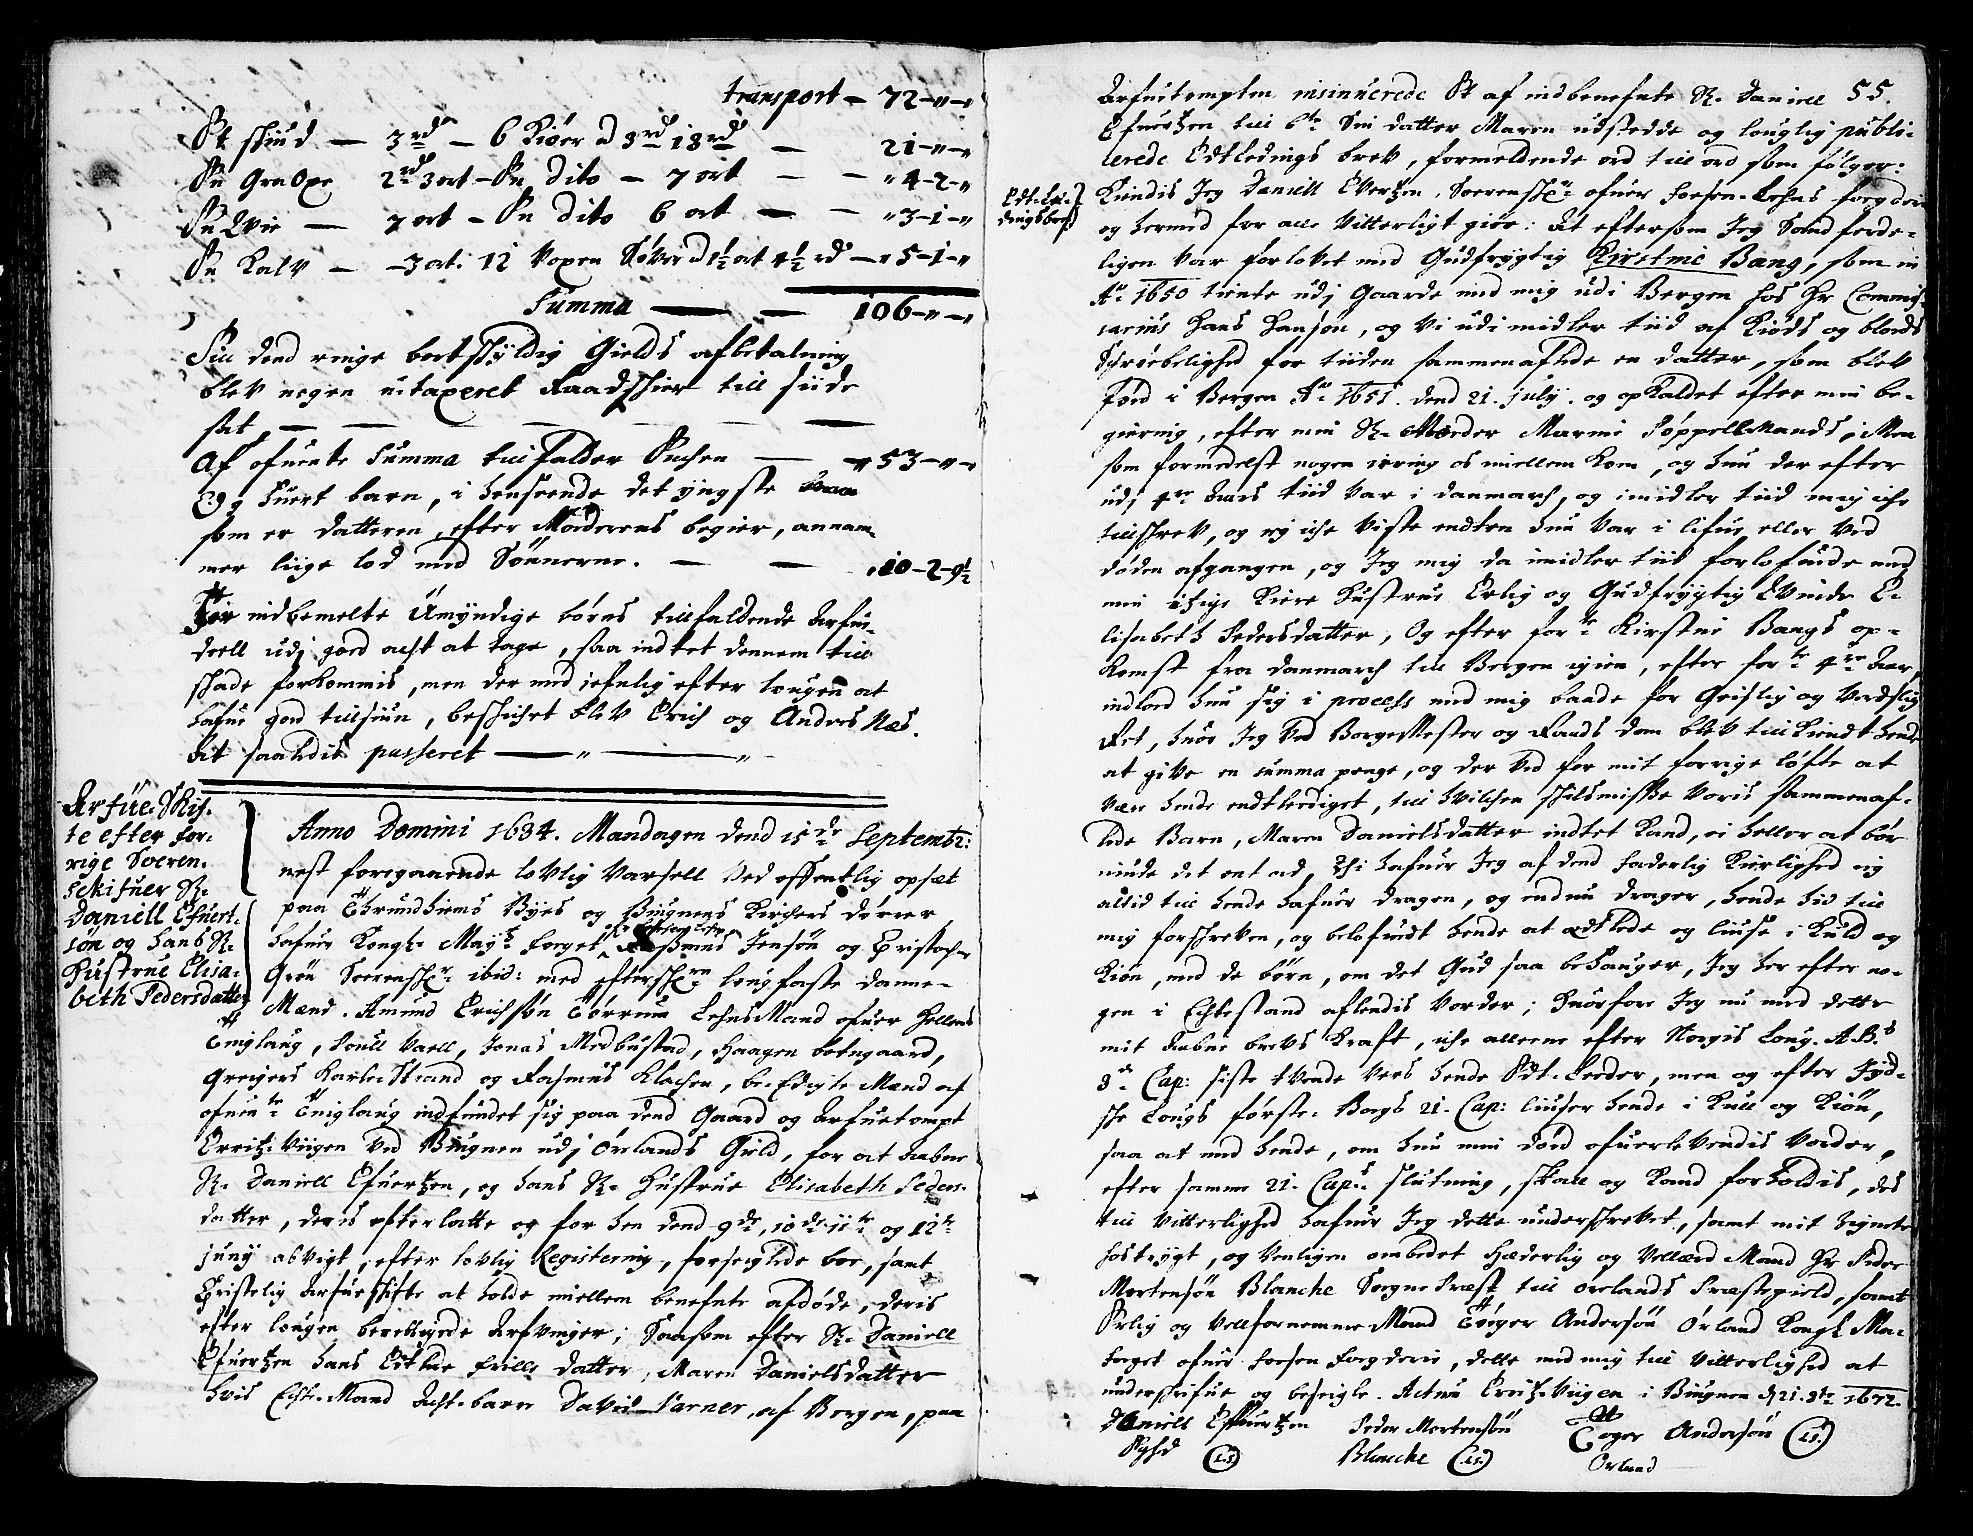 transport – 72-"-"
Et skiud — 3 rd – 6 Kiöer a 3 rd 18 rd — 21-"-"
En Gra Oxe 2 rd 3 ort – En dito – 7 ort — "4-2-"
En Qvie — 7 ort – En dito 6 ort — "3-1-"
En Kalv — 3 ort. 12 Voxen Söver a 1½ ort 4½ rd — "5-1-"
Summa — 106-"-"
Till dend ringe bortskyldig Gields afbetalning
blev nogen utaxeret Faadskier till siide
sat
Af ofuente Summa tillfalder Enchen — 53-"-"
Og huert barn, i henseende det yngste
som er datteren, efter Moderens begier, annam-
mer liige lod med Sönnerne. — 10-2-9½
For indbemelte Umyndige börns tillfaldende Arfue-
deell udj god acht at tage, saa indtet dennem till
skade forkommis, men der med iefnlig efter lougen at
hafue god tillsiun, beskichet blev Erich og Anders Næs.
Dit saaledis passeret — " — "
Arfue Skif-
te efter for-
rige Soren-
skrifuer Sl.
Daniell Efuert-
sön og hans Sl.
Hustrue Elisa-
beth Pedersdatter
Anno Domini 1684. Mandagen dend 15de Septembr:
nest foregaaende lovlig Varsell Ved offentlig opsæt
paa Thrundhiems Byes og Biugnens Kirchers dörer
hafuer Kongl. Maytz foeget Rasmus Jensön og Cristoch.
Grön Sorenskr. ibid: med efterskrne lougfaste Danne-
Mænd. Amund Erichsön Törrum LehnsMand ofuer
Tinglaug, Poull Vaell, Jonas Medbustad, Haagen botngaard,
Gregers Karlestrand og Rasmus Klachen, be-Edigte Mænd af
ofuente Tinglaug indfundet sig paa dend Gaard og Arfuetompt
Kreitz-Viigen Ved Biugnen udj Örlands Gield, for at aabne
Sl. Daniell Efuertzen, og hans Sl. Hustrue Elisabeth Peders-
datter, deris efterlatte og for hen dend 9de, 10de 11te og 12te
Juny af Vigt, efter lovlig Registering, forseiglede boe, samt
Christelig Arfueskifte at holde miellem benefnte afdöde, deris
efter lougen berettigede Arfvinger; Saasom efter Sl. Daniell
Efuertzen hans Datter, Maren Danielsdatter
hvis Echte Mand Acht-baere David Parner, af Bergen, paa
55.
Arfuetompten insinuerede Et af indbenefnte Sl. Daniell
Efuertzen till bte Sin datter Maren udstedde og louglig publi-
cerede Edtledings brev, formeldende ord till ord som fölger:
Edt-Le-
dingsbref
Kiendis Jeg Daniell Evertzen, Sorenskr. ofuer Fosen-Lehns fogderi
og hermed for alle Vitterligt giör: At eftersom Jeg Sand ferde-
ligen Var forlovet med Gudfrygtig Kirstine Bang, som in
Ao 1650 tiente udj Gaarde med mig udi Bergen hos Hr Commis-
sarius Hans Hansön, og Vi udi midler tiid af Kiöds og blods
Schröbelighed for tiiden sammenaflede en datter, som blev
föd i Bergen Ao 1651. dend 21. July. og opkaldet efter min be-
giering, efter min Sl. Moeder Marine Söppellmands, Men
som formedelst nogen irring os miellem kom, og hun der efter
udj 4re Aars tiid Var i Danmarch, og imidler tiid mig iche
tillskrev, og ej iche Viste endten hun Var i lifue eller Ved
döden afgangen, og Jeg mig da imidler tiid forlofuede med
min itzige Kiere Hustrue Erlig og Gudfrygtig Qvinde E-
lisabeth Pedersdatter, Og efter forte Kirstine Bangs op-
komst fra Danmarch till Bergen igien, efter forte 4re Aar,
indlod hun sig i process med mig baade for Geistlig og Verdslig
Ret, huor Jeg Ved BorgeMester og Raads dom blev tillkiendt hende
at give en summa penge, og der Ved for mit forrige löfte at
Være hende endtlediget, till hvilchen skilsmisse Voris sammenaf-
lede Barn, Maren Danielsdatter indtet Kand, ei heller at bör
niude det ont ad, Thi hafuer Jeg af dend faderlig Kierlighed ieg
altid till hende hafuer dragen, og endnu drager, hende hid till
mig forskreven, og belofuidt hende at edtlede og liuse i Kuld og
Kiön, med de börn, om det Gud saa behauger, Jeg her efter no-
gen i Echtestand aflendis Vorder; Huorfore Jeg nu med dette
mit aabne brevs Kraft, iche alleene efter Norgis Loug. A.B.s
8de Cap: siste tvende Vers hende Edt-Leeder, men og efter Jyd-
ske Lougs förste Bogs 21. Cap: liuser hende i Kull og Kiön,
saa at med hende, om hun min död ofuerlevendis Vorder,
efter samme 21. Cap:s slutning, skall og Kand forholdis, des
till Vitterlighed hafuer Jeg dette underskrevet, samt mit Zignete
hostrygt, og Venligen ombedet Hæderlig og Vellærd Mand Hr Peder
Mortensön Blanche Sogne Præst till Örelands Præstegield, samt
Erlig og Vellfornemme Mand Töger Andersön Örland Kongl. Ma:
foeget ofuer Fosen Fogderie, dette med mig till Vitterlighed at
underskrifue og beseigle. Actum Kreitz-Viigen i Biugnen d 21. 8br 1672.
Daniell Efuertzen Peder Mortensön Töger Andersön (LS.)
Eghd (LS) Blanche (LS.) Örland